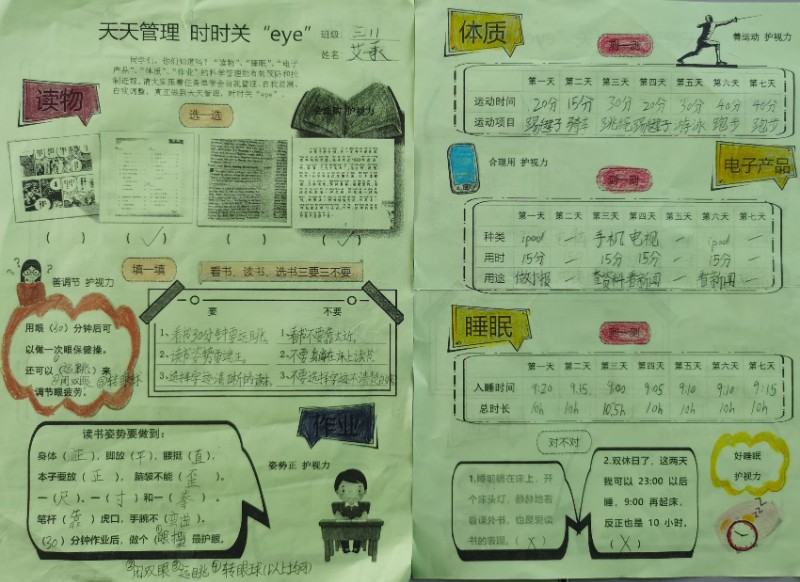 天天管理 时时关“eye”
班级: 三11
姓名:
同学们，你们知道吗？“读物”、“睡眠”、“电子
产品”、“体质”、“作业”的科学管理能有效预防和控
制近视。请大家跟着任务单学会自我管理、自我监测、
自我调整，真正做到天天管理，时时关“eye”。
读物
选一选
护视力
( ) (✓) ( ) (✓)
善调节 护视力
填一填
看书、读书、选书三要三不要
用眼 (30) 分钟后可
以做一次眼保健操。
还可以 (①远眺) 来
②闭双眼 ③转眼球
调节眼疲劳。
要 不要
1、看书30分钟要远眺。
2、读书姿势要端正。
3、选择字迹清晰的读本。
1、看书不要靠太近。
2、不要躺在床上读书。
3、不要选择字迹不清楚的
作业
姿势正 护视力
读书姿势要做到：
身体（正），脚放（平），腰挺（直）。
本子要放（正），脑袋不能（歪）。
一（尺）、一（寸）和一（拳）。
笔杆（靠）虎口，手腕不（弯曲）。
（30）分钟作业后，做个（①眼操）最护眼。
②闭双眼 ③远眺 ④转眼球(以上均可)
体质
测一测
善运动 护视力
第一天 第二天 第三天 第四天 第五天 第六天 第七天
运动时间 20分 15分 30分 20分 30分 40分 40分
运动项目 踢毽子 骑车 跳绳 踢毽子 游泳 跑步 跑步
合理用 护视力
测一测
电子产品
第一天 第二天 第三天 第四天 第五天 第六天 第七天
种类 ipad — 手机 电视 — ipad —
用时 15分 — 15分 15分 — 15分 —
用途 做小报 — 查资料 看新闻 — 看新闻 —
睡眠
测一测
第一天 第二天 第三天 第四天 第五天 第六天 第七天
入睡时间 9:20 9:15 9:00 9:05 9:10 9:10 9:15
总时长 10h 10h 10.5h 10h 10h 10h 10h
对不对
好睡眠
护视力
1.睡前躺在床上，开
个床头灯，静静地看
看课外书，也是爱读
书的表现。（X）
2.双休日了，这两天
我可以 23:00 以后
睡，9:00 再起床，
反正也是 10 小时。
（X）